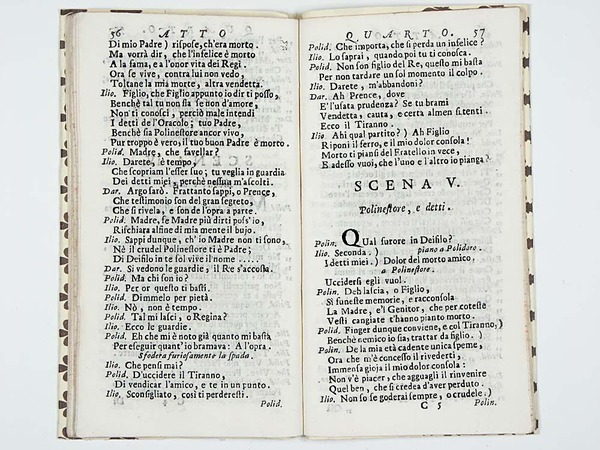 56 ATTO
Di mio Padre) rispose, ch'era morto.
Ma vorrà dir, che l'infelice è morto
A la fama, e a l'onor vita dei Regi.
Ora se vive, contra lui non vedo,
Toltane la mia morte, altra vendetta.
Ilio. Figlio, che Figlio appunto io dir ti posso,
Benchè tal tu non sia se non d'amore,
Non ti conosci, perciò male intendi
I detti de l'Oracolo; tuo Padre,
Benchè sia Polinestore ancor vivo,
Pur troppo è vero, il tuo buon Padre è morto.
Polid. Madre, che favellar?
Ilio. Darete, è tempo,
Che scopriam l'esser suo; tu veglia in guardia
Dei detti miei, perchè nessun m'ascolti.
Dar. Argo sarò. Frattanto sappi, o Prence,
Che testimonio son del gran segreto,
Che si rivela, e son de l'opra a parte.
Polid. Madre, se Madre più dirti poss'io,
Rischiara alfine di mia mente il bujo.
Ilio. Sappi dunque, ch'io Madre non ti sono,
Nè il crudel Polinestore ti è Padre;
Di Deifilo in te sol vive il nome .....
Dar. Si vedono le guardie, il Re s'accosta.
Polid. Ma chi son io?
Ilio. Per or questo ti basti.
Polid. Dimmelo per pietà.
Ilio. Nò, non è tempo.
Polid. Tal mi lasci, o Regina?
Ilio. Ecco le guardie.
Polid. Eh che mi è noto già quanto mi basta
Per eseguir quant'io bramava: A l'opra.
Sfodera furiosamente la spada.
Ilio. Che pensi mai?
Polid. D'uccidere il Tiranno,
Di vendicar l'amico, e te in un punto.
Ilio. Sconsigliato, così ti perderesti.
Polid.
QUARTO. 57
Polid. Che importa, che si perda un infelice?
Ilio. Lo saprai, quando poi tu ti conosca.
Polid. Non son figlio del Re, questo mi basta
Per non tardare un sol momento il colpo.
Ilio. Darete, m'abbandoni?
Dar. Ah Prence, dove
E' l'usata prudenza? Se tu brami
Vendetta, cauta, e certa almen si tenti.
Ecco il Tiranno.
Ilio Ahi qual partito?) Ah Figlio
Riponi il ferro, e il mio dolor consola!
Morto ti piansi del Fratello in vece,
E adesso vuoi, che l'uno e l'altro io pianga?
SCENA V.
Polinestore, e detti.
Polin. QUal furore in Deifilo?
Ilio. Seconda.) piano a Polidoro.
I detti miei.) Dolor del morto amico,
a Polinestore.
Uccidersi egli vuol.
Polin. Deh lascia, o Figlio,
Sì funeste memorie, e racconsola
La Madre, e'l Genitor, che per coteste
Vesti cangiate t'hanno pianto morto.
Polid. Finger dunque conviene, e col Tiranno,)
Benchè nemico io sia, trattar da figlio.)
Polin. De la mia età cadente unica speme,
Ora che m'è concesso il rivederti,
Immensa gioja il mio dolor consola:
Non v'è piacer, che agguagli il rinvenire
Quel ben, che si credea d'aver perduto.
Ilio. Non so se goderai sempre, o crudele.)
C 5 Polin.